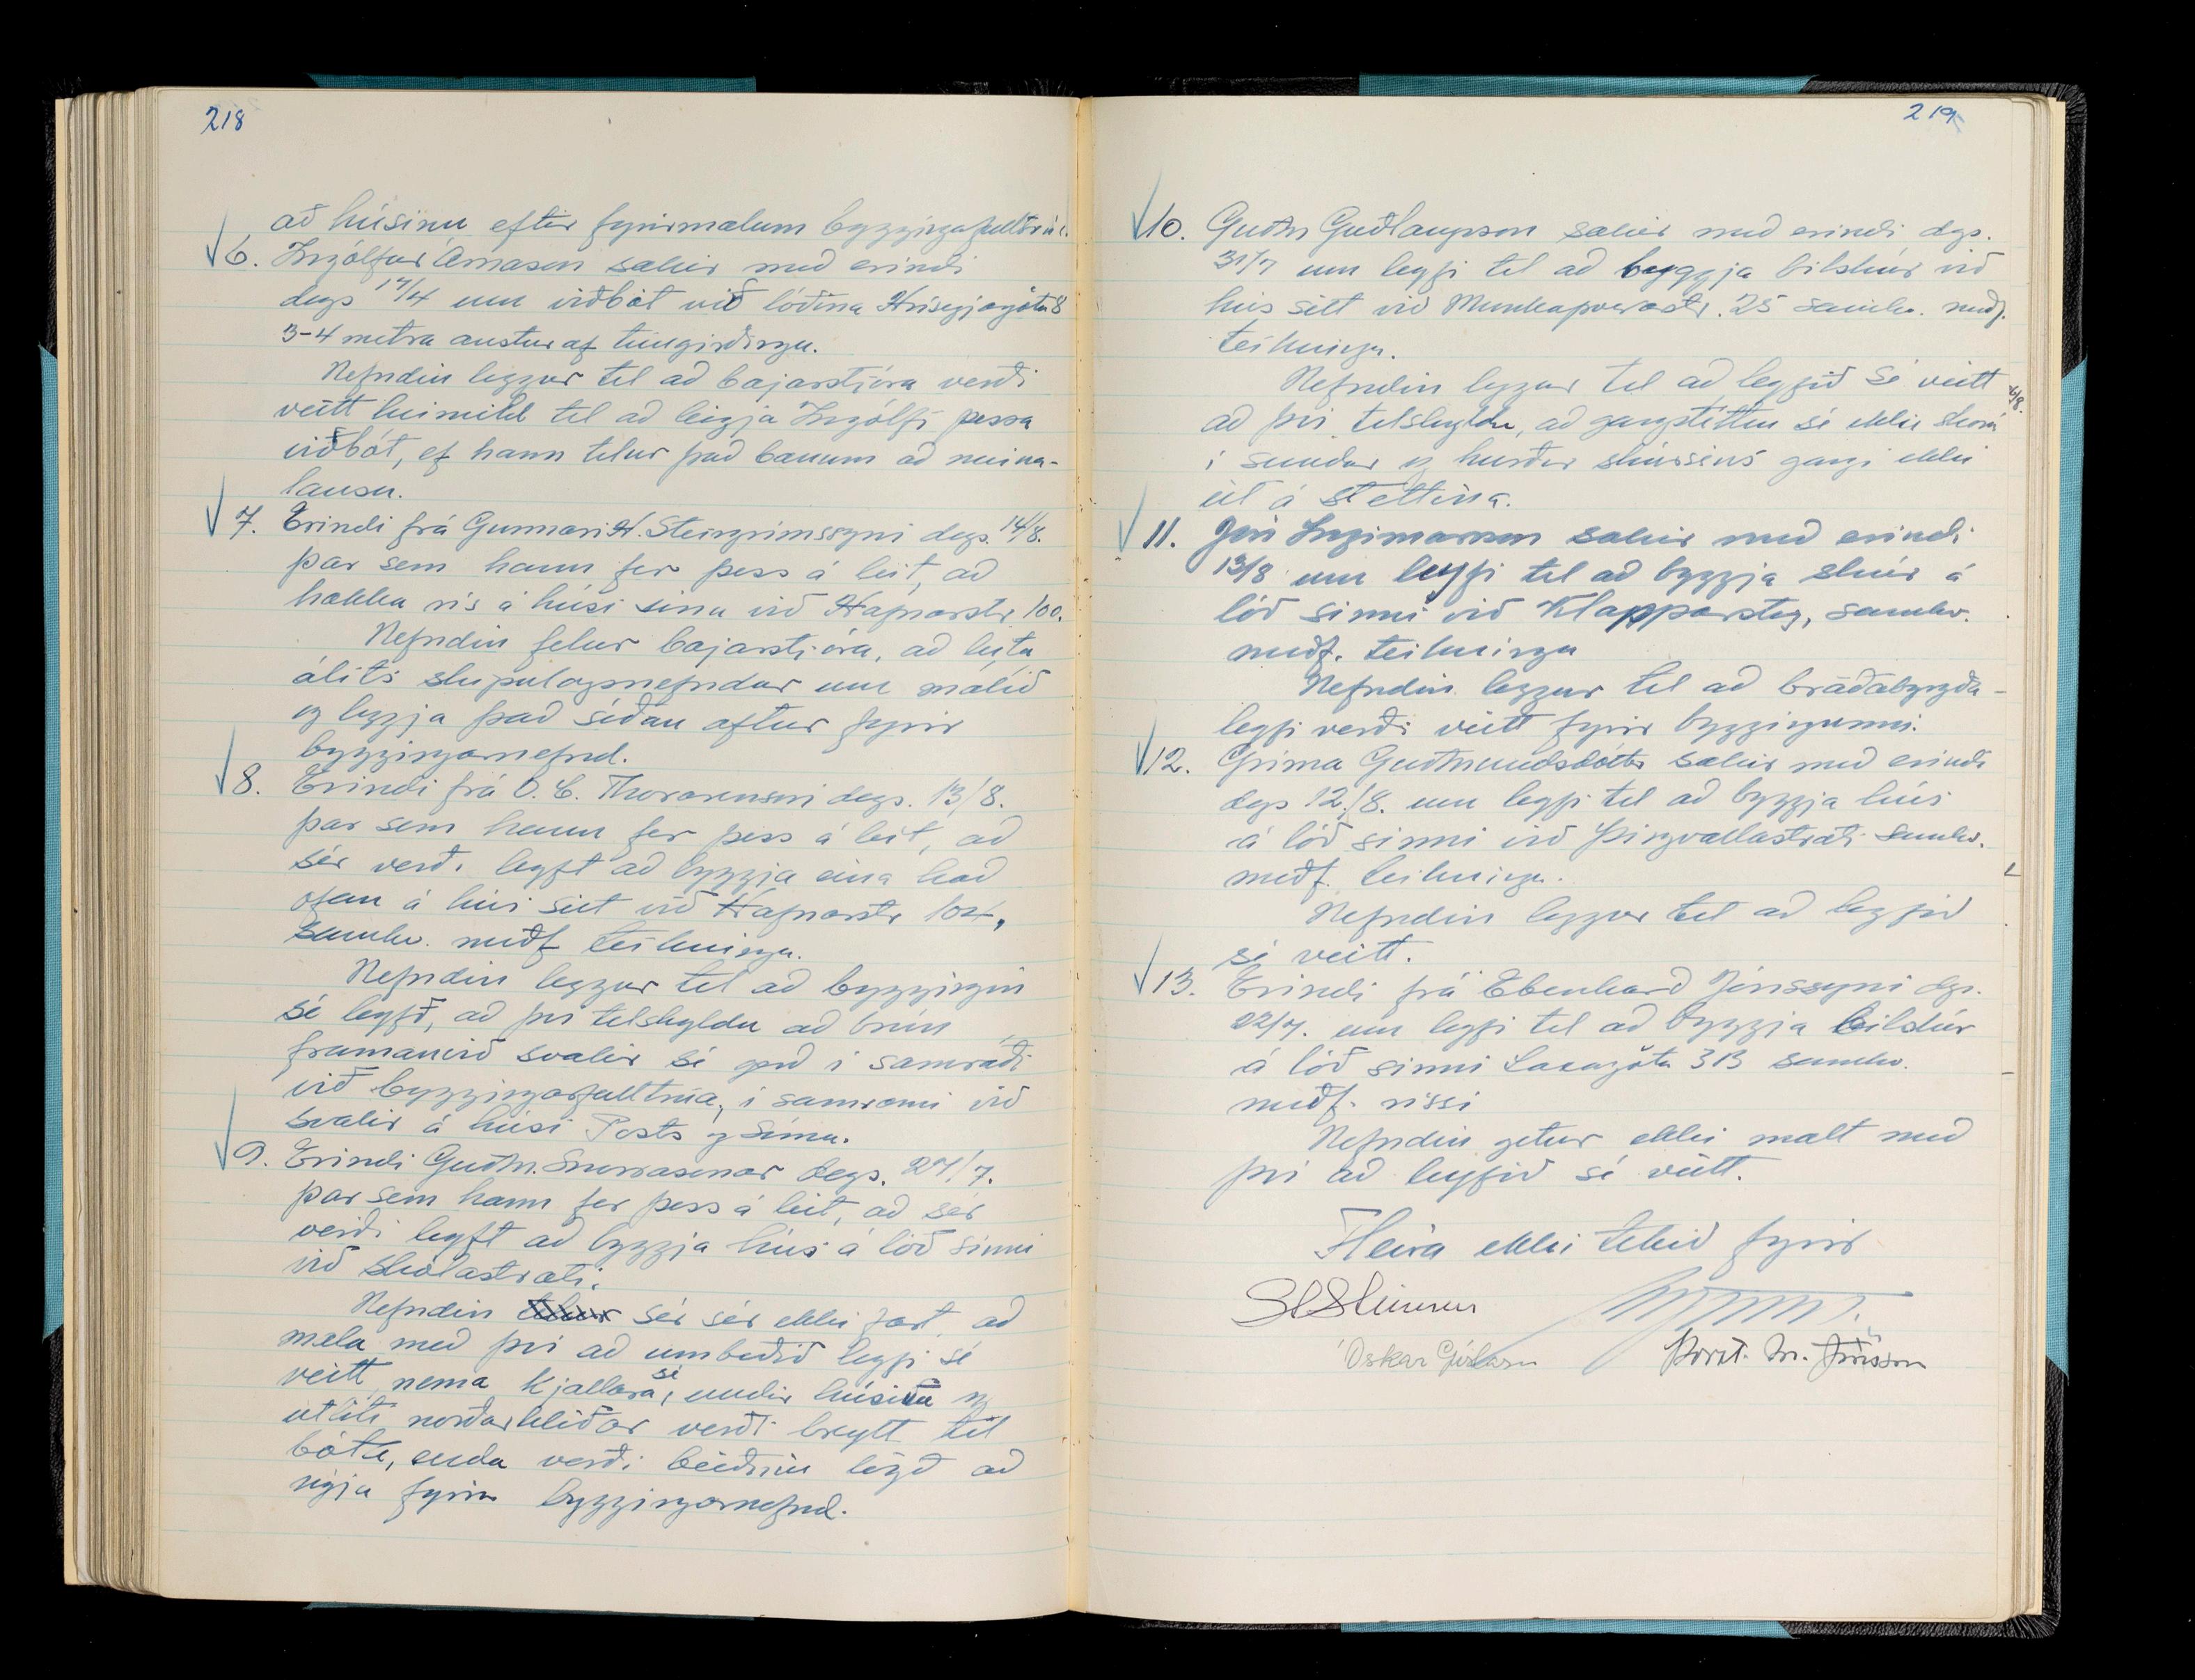 218
að húsinu eftir fyrirmælum byggingafulltrúa.
6. Ingólfur Árnason sækir með erindi
dags 14/4 um viðbót við lóðina Hríseyjagötu 8
3-4 metra austur af túngirðingu.
Nefndin leggur til að bæjarstjóra verði
veitt heimild til að leigja Ingólfi þessa
viðbót, ef hann telur það bænum að meina-
lausu.
7. Erindi frá Gunnari H. Steingrímssyni dags. 14/8.
þar sem hann fer þess á leit, að
hækka ris á húsi sínu við Hafnarstr. 100.
Nefndin felur bæjarstjóra, að leita
álits skipulagsnefndar um málið
og leggja það síðan aftur fyrir
byggingarnefnd.
8. Erindi frá O. C. Thorarensen dags. 13/8.
þar sem hann fer þess á leit, að
sér verði leyft að byggja eina hæð
ofan á hús sitt við Hafnarstr 104,
samkv. meðf teikningu.
Nefndin leggur til að byggingin
sé leyfð, að því tilskyldu að brún
framanvið svalir sé gerð í samráði
við byggingarfulltrúa, í samræmi við
svalir á húsi Posts og Síma.
9. Erindi Guðm. Snorrasonar dags. 27/7.
þar sem hann fer þess á leit, að sér
verði leyft að byggja hús á lóð sinni
við Skólastræti.
Nefndin sér sér ekki fært, að
mæla með því að umbeðið leyfi sé
veitt, nema kjallari sé undir húsinu og
útliti norðurhliðar verði breytt til
bóta, enda verði beiðnin lögð að
nýju fyrir byggingarnefnd.
219
10. Guðm Guðlaugsson sækir með erindi dgs.
31/7 um leyfi til að byggja bílskúr við
hús sitt við Munkaþverárstr. 25 samkv. meðf.
teikningu.
Nefndin leggur til að leyfið sé veitt
að því tilskyldu, að gangstéttin sé ekki skorin
í sundur og hurðir skúrsins gangi ekki
út á stéttina.
11. Jón Ingimarsson sækir með erindi
13/8 um leyfi til að byggja skúr á
lóð sinni við Klapparstíg, samkv.
meðf. teikningu
Nefndin leggur til að bráðabyrgða-
leyfi verði veitt fyrir byggingunni.
12. Gríma Guðmundsdóttir sækir með erindi
dags 12./8. um leyfi til að byggja hús
á lóð sinni við Þingvallastræti samkv.
meðf. teikningu.
Nefndin leggur til að leyfið
sé veitt.
13. Erindi frá Ebenhard Jónssyni dgs.
22/7. um leyfi til að byggja bílskúr
á lóð sinni Laxagötu 3B samkv.
meðf. rissi
Nefndin getur ekki mælt með
því að leyfið sé veitt.
Fleira ekki tekið fyrir
Óskar Gíslason
Þorst. M. Jónsson